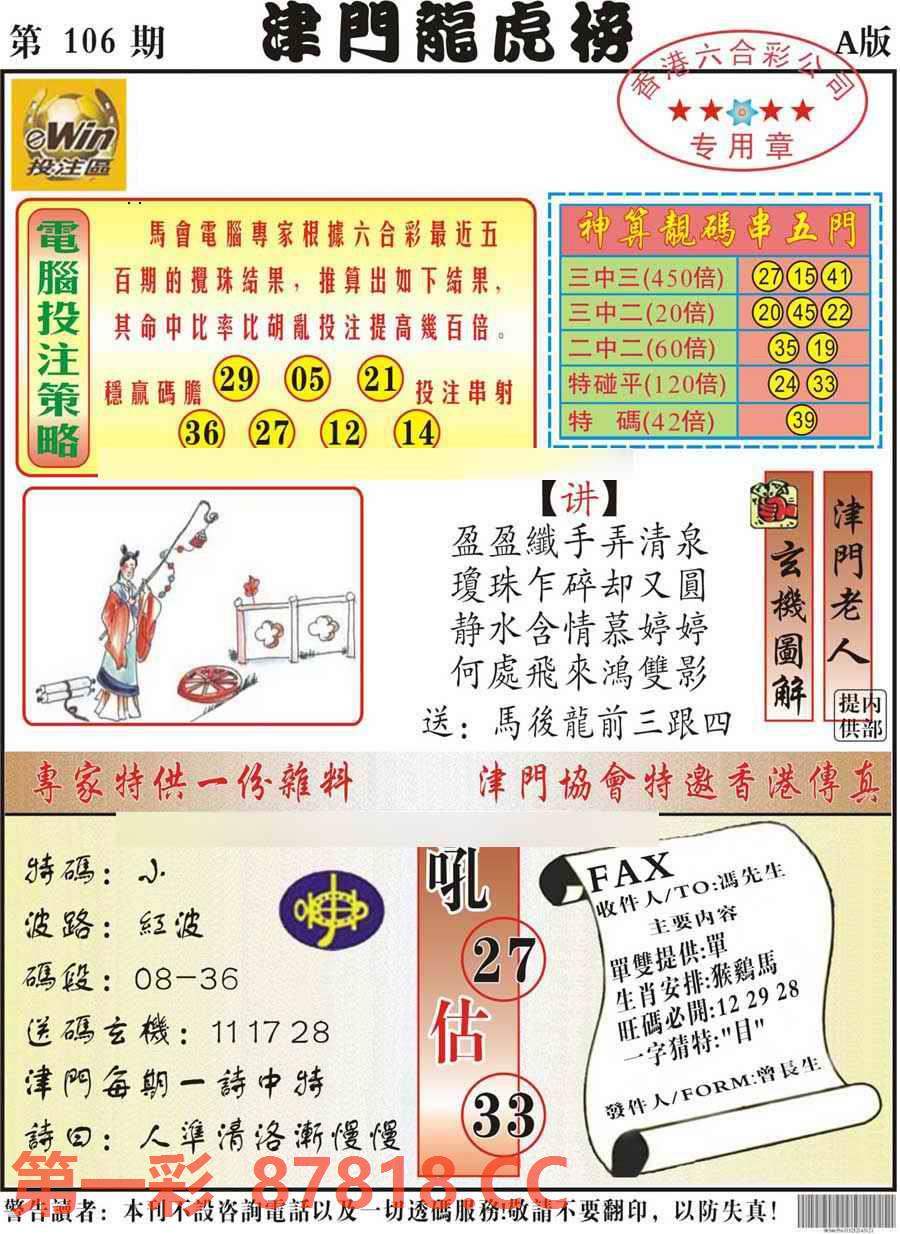 第 106 期
津門龍虎榜
A版
香港六合彩公司
专用章
eWin
投注區
電腦投注策略
馬會電腦專家根據六合彩最近五
百期的攪珠結果，推算出如下結果，
其命中比率比胡亂投注提高幾百倍。
穩贏碼膽 29 05 21 投注串射
36 27 12 14
神算靚碼串五門
三中三(450倍) 27 15 41
三中二(20倍) 20 45 22
二中二(60倍) 35 19
特碰平(120倍) 24 33
特 碼(42倍) 39
【讲】
盈盈纖手弄清泉
瓊珠乍碎却又圓
静水含情慕婷婷
何處飛來鴻雙影
送：馬後龍前三跟四
玄機圖解
津門老人
内部提供
專家特供一份雜料
津門協會特邀香港傳真
特碼：小
波路：紅波
碼段：08-36
送碼玄機：11 17 28
津門每期一詩中特
詩曰：人準清洛漸慢慢
吼
27
估
33
FAX
收件人/TO:馮先生
主要内容
單雙提供:單
生肖安排:猴鷄馬
旺碼必開:12 29 28
一字猜特:"目"
發件人/FORM:曾長生
第一彩 87818.CC
警告讀者：本刊不設咨詢電話以及一切透碼服務!敬請不要翻印，以防失真!